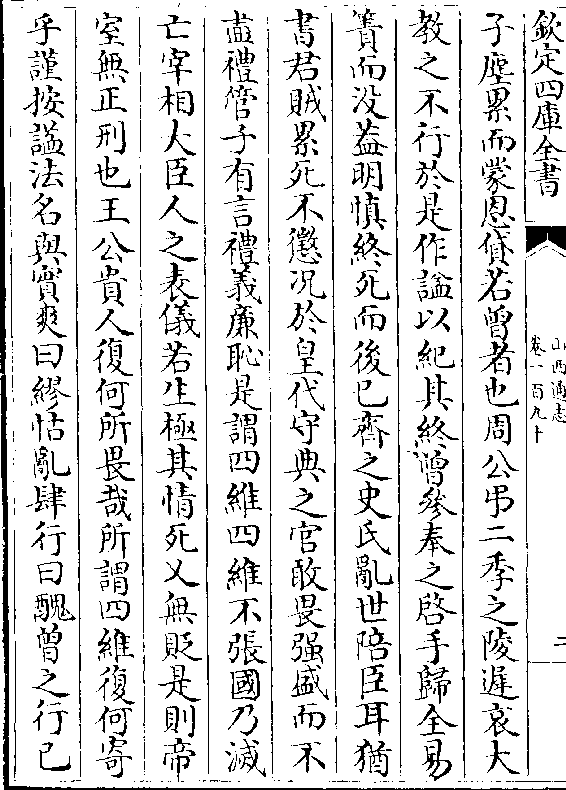 欽定四庫全書
山西通志
卷一百九十
二
子塵累而蒙恩貸若曾者也周公弔二季之陵遲哀大
教之不行於是作謚以紀其終曾參奉之啓手歸全易
簀而没葢明慎終死而後已齊之史氏亂世陪臣耳猶
書君賊累死不懲況於皇代守典之官敢畏强盛而不
盡禮管子有言禮義廉恥是謂四維四維不張國乃滅
亡宰相大臣人之表儀若生極其情死乂無貶是則帝
室無正刑也王公貴人復何所畏哉所謂四維復何寄
乎謹按謚法名與實爽曰繆怙亂肆行曰醜曾之行已